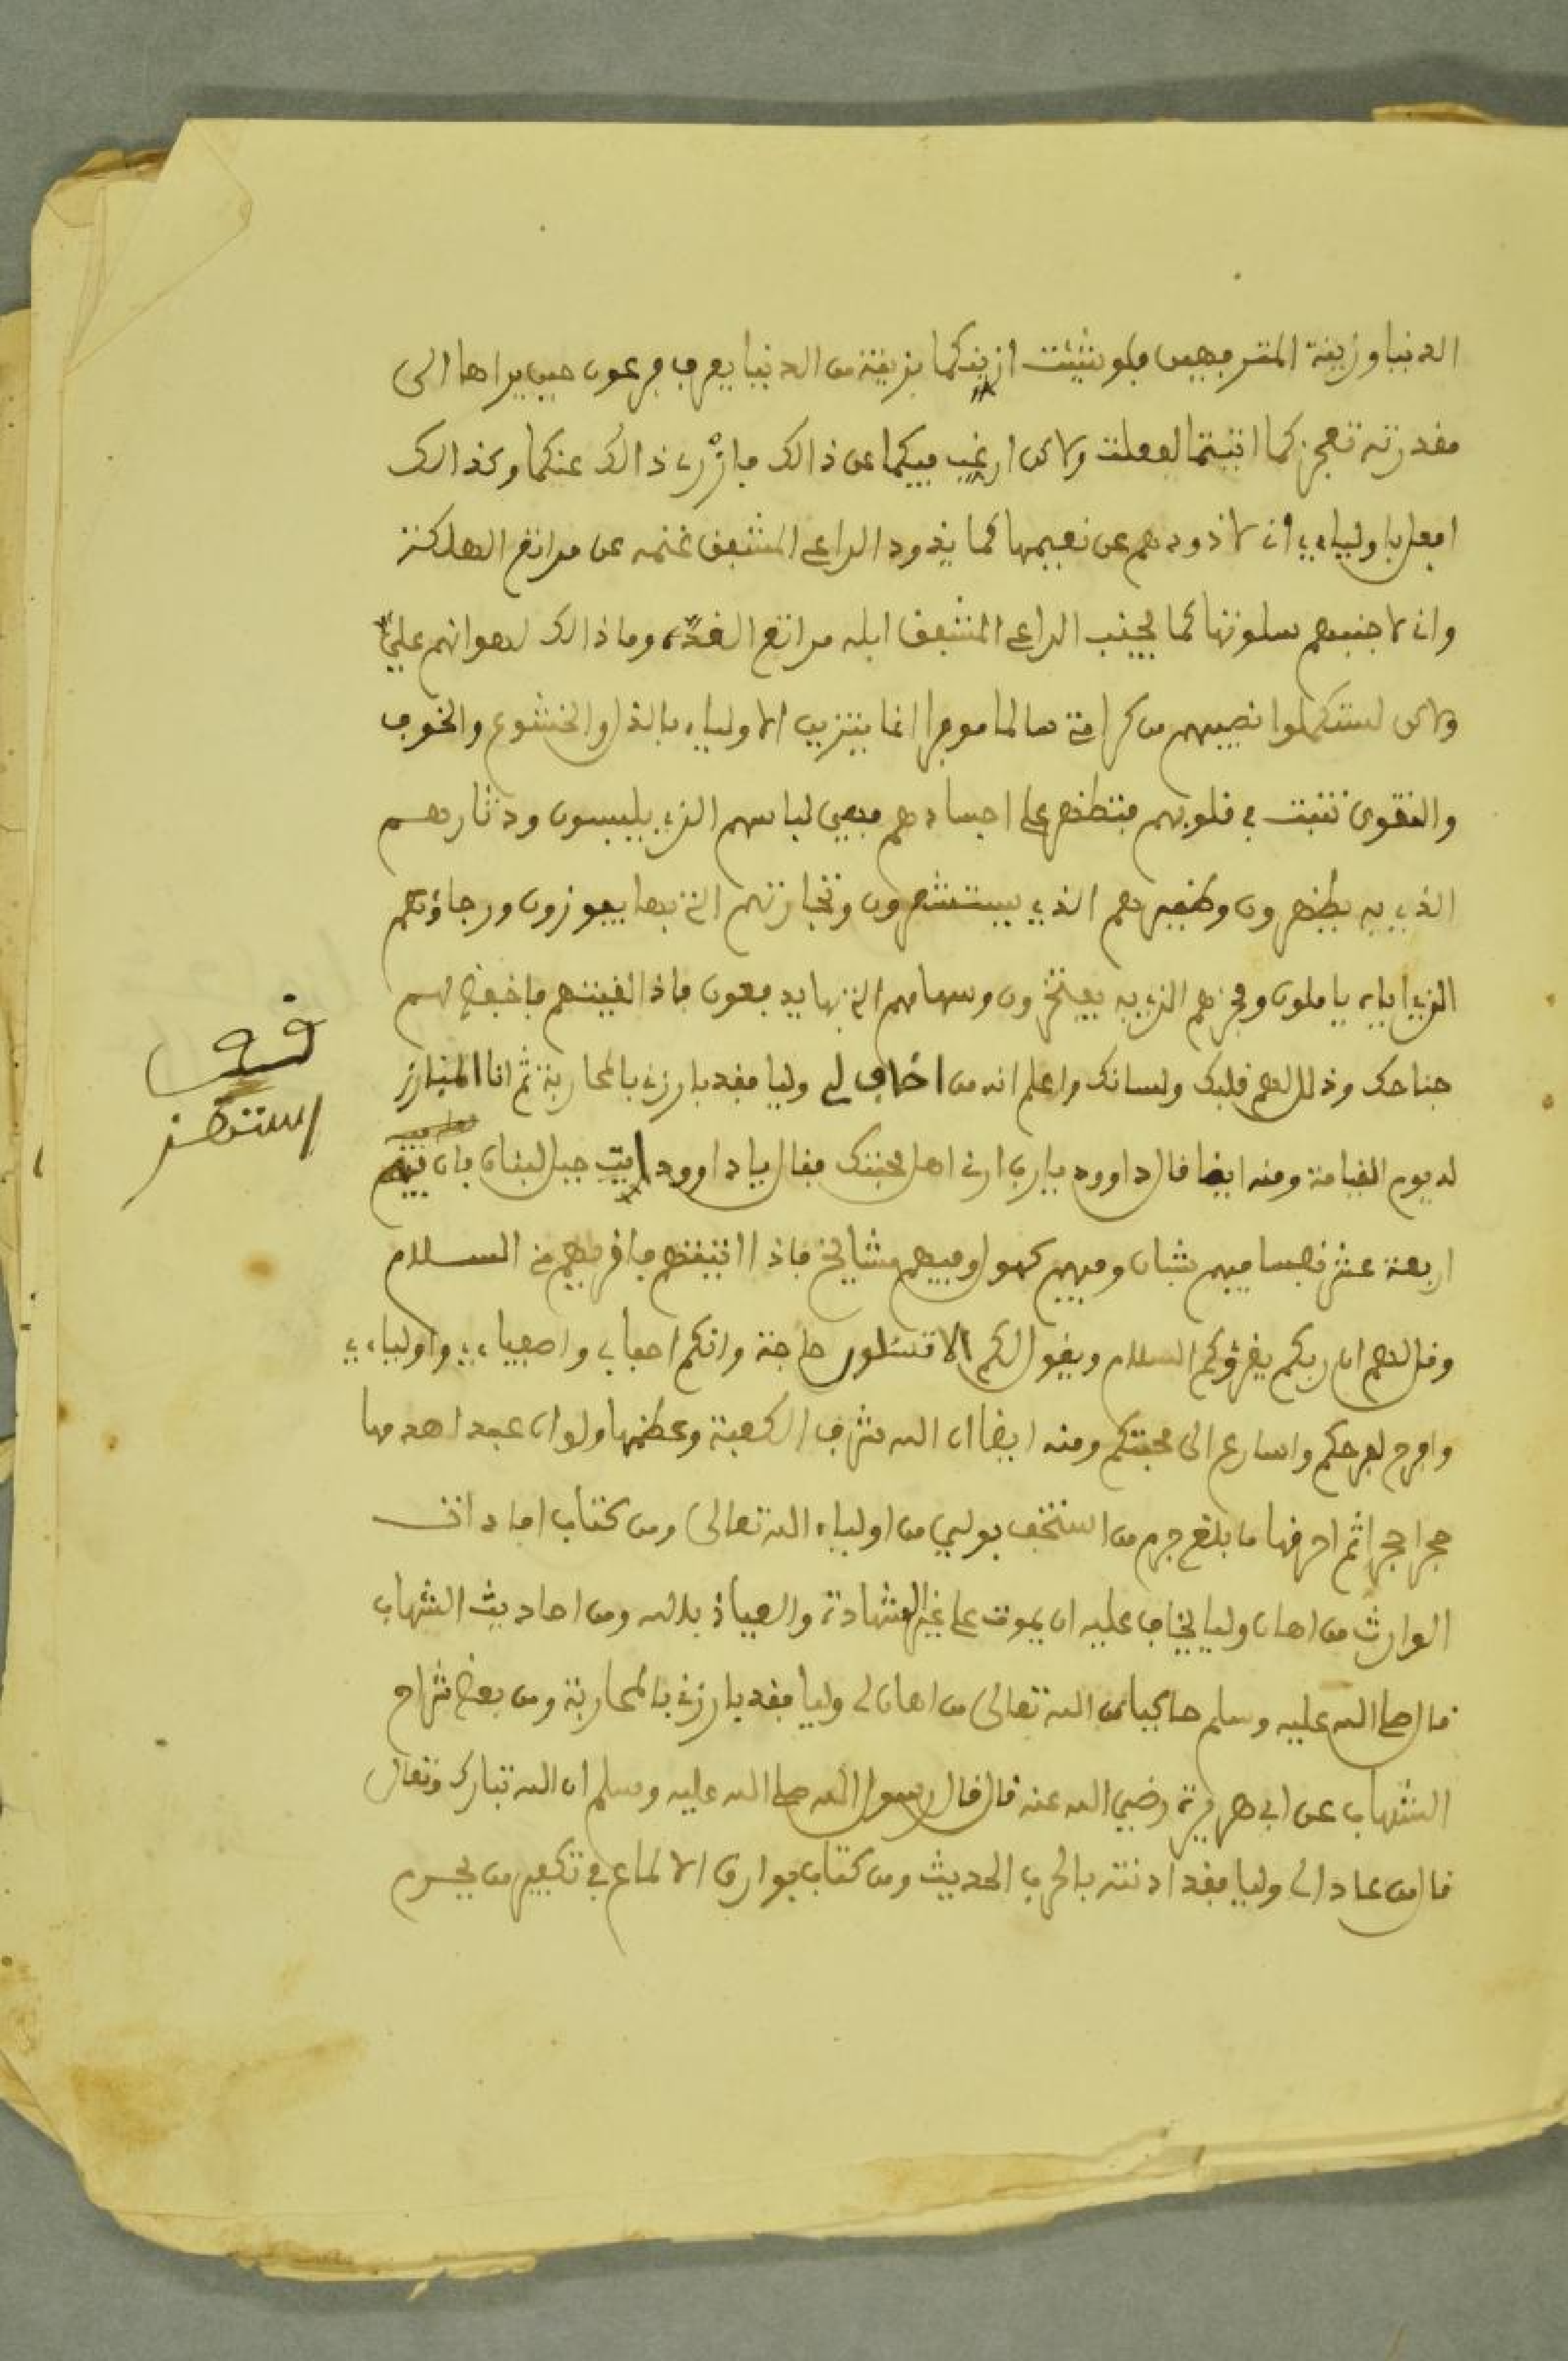 الدنيا وزينة المترفهين فلو شئت ازينكما بزينة من الدنيا يعرف فرعون حين يراها الى
مقدرته تعجز كما اتيتما لفعلت ولاكن ارغب بيكما عن ذالك فازوي ذالك عنكما وكذالك
افعل باولياءي اني لاذودهم عن نعيمها كما يذود الراعي المشفق غنمه عن مراتع الهلكة
واني لاجنبهم سلوتها كما يجنب الراعي المشفق ابله مراتع الغدة وما ذالك لهوانهم علي
ولاكن لستكملوا نصيبهم من كرامتي سالما موفرا انما يتزين الاولياء بالذل والخشوع والخوف
والتقوى تثبت في قلوبهم فتظهر على اجسادهم فهي لباسهم الذي يلبسون ودثارهم
الذي به يظهرون وظميرهم الذي يستشعرون وتجارتهم التي بها يفوزون ورجاؤهم
الذي اياه ياملون وفخرهم الذي به يفتخرون وسهامهم التي بها يدفعون فاذا لقيتهم فاخفض لهم
جناحك وذلل لهم قلبك ولسانك واعلم انه من اخاف لي وليا فقد بارزني بالمحاربة ثم انا المبارز
له يوم القيامة ومنه ايضا قال داوود يارب ارني اهل محبتك فقال يا داوود ايت جبل لبنان فان فيه
اربعة عشر نفسا فيهم شبان وفيهم كهول وفيهم مشايخ فاذا اتيتهم فاقرهم مني السلام
وقل لهم ان ربكم يقرؤكم السلام ويقول لكم الا تسئلون حاجة وانكم احبابي واصفياءي واولياءي
وافرح لفرحكم واسارع الى محبتكم ومنه ايضا ان الله شرف الكعبة وعظمها ولو ان عبدا هدمها
حجرا حجرا ثم احرقها ما بلغ جرم من استخف بولي من اولياء الله تعالى ومن كتاب
الوارث من اهان وليا يخاف عليه ان يموت على غير الشهادة والعياذ بالله ومن احاديث الشهاب
قال صلى الله عليه وسلم حاكيا عن الله تعالى من اهان لي وليا فقد بارزني بالمحاربة ومن بعض شراح
الشهاب عن ابي هريرة رضي الله عنه قال قال رسول الله صلى الله عليه وسلم ان الله تبارك وتعالى
قال من عادا لي وليا فقد اذنته بالحرب الحديث ومن كتاب بوارق الالماع في تكفير من يحرم
قف